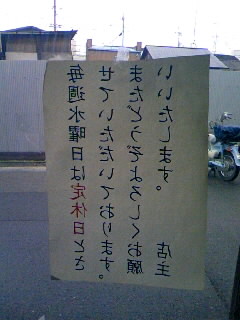 毎週水曜日は定休日とさ
せていただいております。
またどうぞよろしくお願
いいたします。
店主